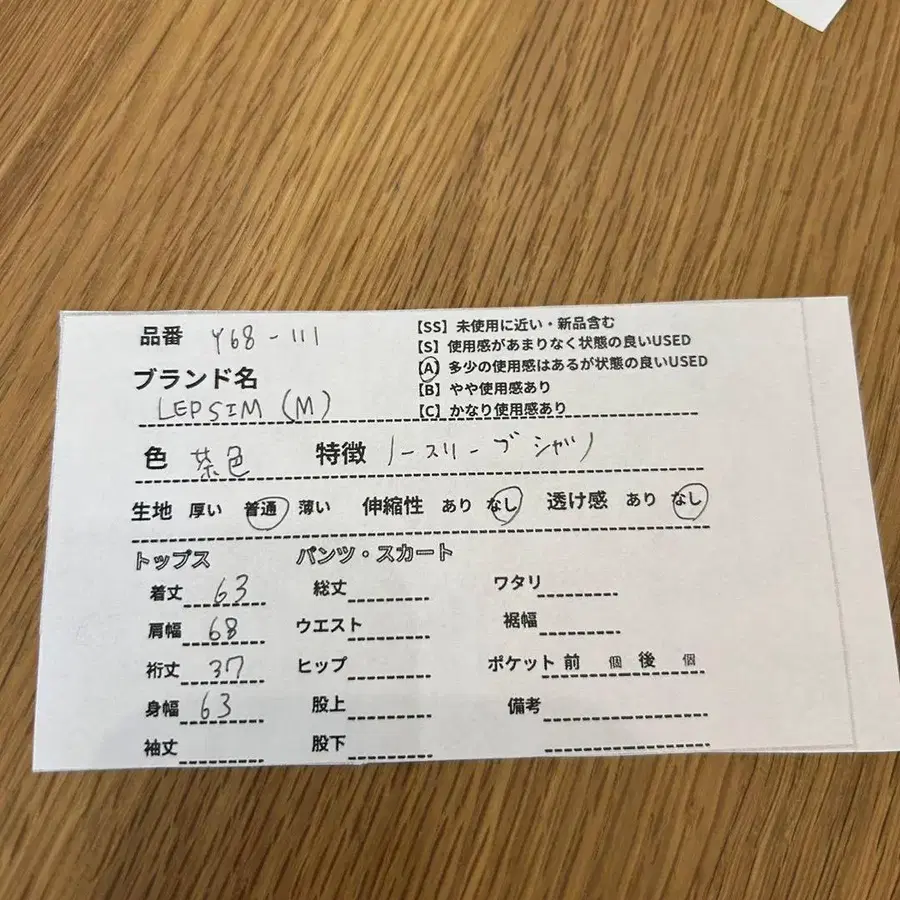 品番 Y68-111
【SS】未使用に近い・新品含む
【S】使用感があまりなく状態の良いUSED
【A】多少の使用感はあるが状態の良いUSED
【B】やや使用感あり
【C】かなり使用感あり
ブランド名
LEPSIM (M)
色 茶色 特徴 ノースリーブシャツ
生地 厚い 普通 薄い 伸縮性 あり なし 透け感 あり なし
トップス パンツ・スカート
着丈 63 総丈 ワタリ
肩幅 68 ウエスト 裾幅
裄丈 37 ヒップ ポケット 前 個 後 個
身幅 63 股上 備考
袖丈 股下